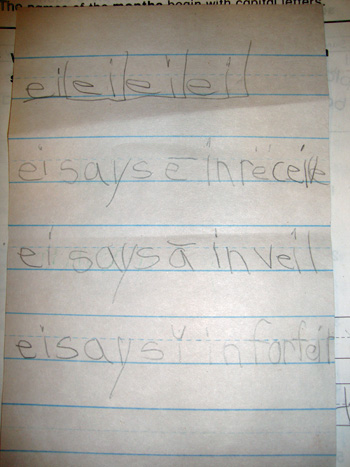 The names of the months begin with capital letters.
ei ei ei ei
ei says ē in
ei says ā in veil
ei says ĭ in forfeit